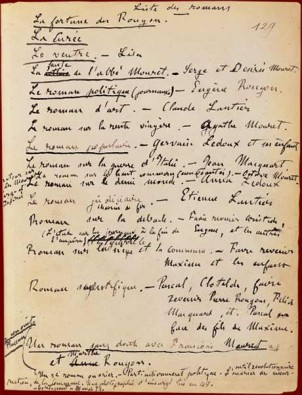 Liste des romans
129
La fortune des Rougon.
La Curée
Le ventre. — Lisa
La faute de l'abbé Mouret. — Serge et Désirée Mouret.
Le roman politique (journaux) — Eugène Rougon.
Le roman d'art. — Claude Lantier
Le roman sur la rente viagère. — Agathe Mouret.
Le roman populaire. — Gervaise Ledoux et ses enfants.
Le roman sur la guerre d'Italie. — Jean Macquart.
Le roman sur le haut commerce (nouveautés) — Octave Mouret
Le roman sur le demi monde. — Anna Ledoux
Le roman judiciaire — Etienne Lantier
chemin de fer
Roman sur la débâcle. — Faire revenir Aristide,
Eugène, et les autres
Roman sur le siège et la Commune — Faire revenir
Maxime et les
Roman scientifique. — Pascal, Clotilde, faire
revenir Pierre Rougon, Félicité
Macquart, et. Pascal en
face des fils de Maxime.
Un roman sans doute avec François Mouret
et Marthe Rougon.
Un 2e roman ouvrier. — Particulièrement politique.